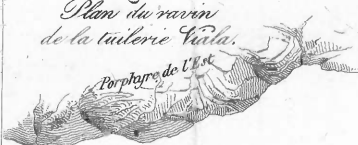 Plan du ravin
de la tuilerie Viala.
Porphyre de l'Est